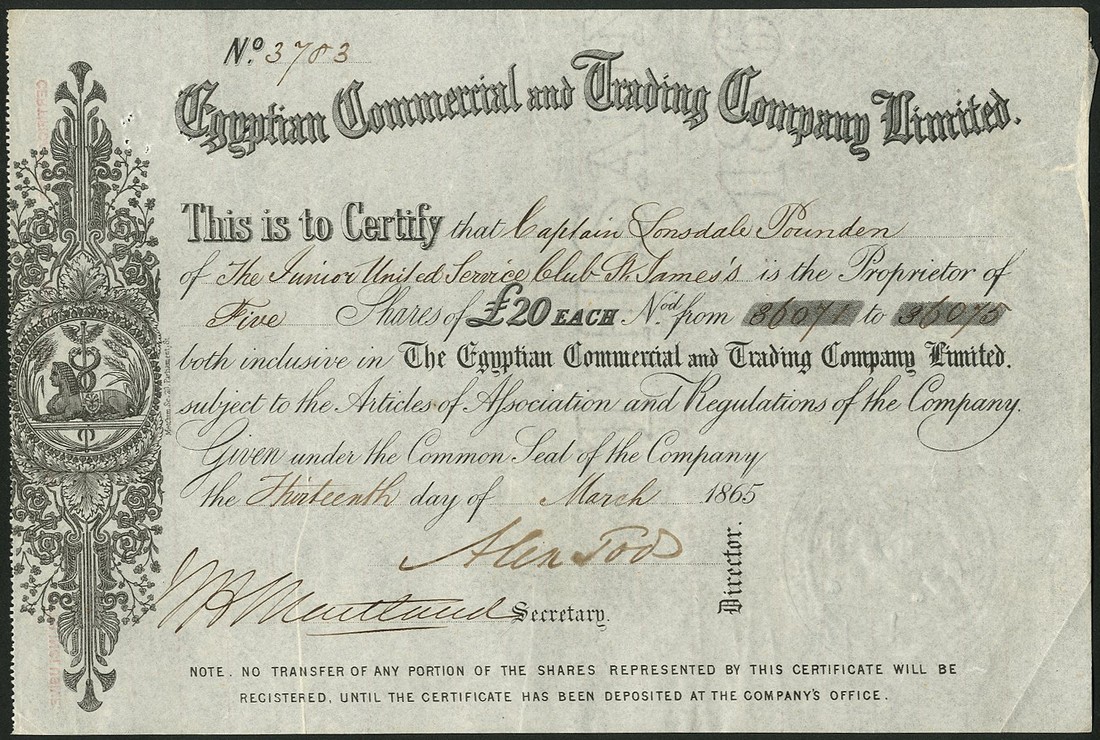 No. 3703
Egyptian Commercial and Trading Company Limited.
This is to Certify that Captain Lonsdale Pounden
of The Junior United Service Club St. James's is the Proprietor of
Five Shares of £20 EACH Nod. from 36071 to 36075
both inclusive in The Egyptian Commercial and Trading Company Limited.
subject to the Articles of Association and Regulations of the Company.
Given under the Common Seal of the Company
the Thirteenth day of March 1865
Alex Tod
Director.
Maitland Secretary.
NOTE. NO TRANSFER OF ANY PORTION OF THE SHARES REPRESENTED BY THIS CERTIFICATE WILL BE
REGISTERED, UNTIL THE CERTIFICATE HAS BEEN DEPOSITED AT THE COMPANY'S OFFICE.